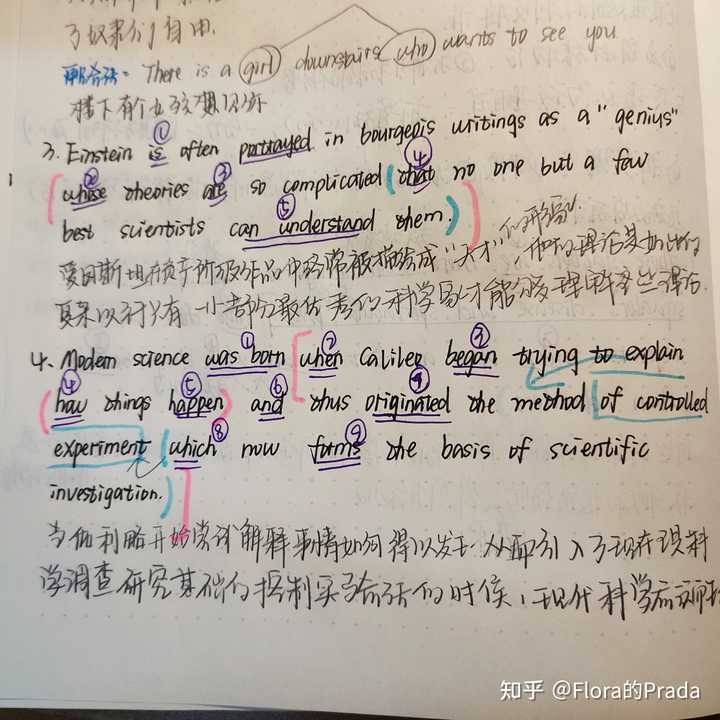 了奴隶们自由.
There is a girl downstairs who wants to see you
楼下有个女孩想见你
①
3. Einstein is often portrayed in bourgeois writings as a "genius"
② ③ ④
whose theories are so complicated (that no one but a few
⑤
best scientists can understand them)
爱因斯坦在资产阶级作品中经常被描绘成"天才"的形象,他的理论是如此的
复杂以致于只有一小部分最优秀的科学家才能够理解这些理论.
① ② ③
4. Modern science was born when Galileo began trying to explain
④ ⑤ ⑥
how things happen and thus originated the method of controlled
⑧ ⑨
experiment (which now forms the basis of scientific
investigation.)
当伽利略开始尝试解释事情如何得以发生从而引入了现在现科
学调查研究基础的控制实验方法的时候,现代科学
知乎 @Flora的Prada